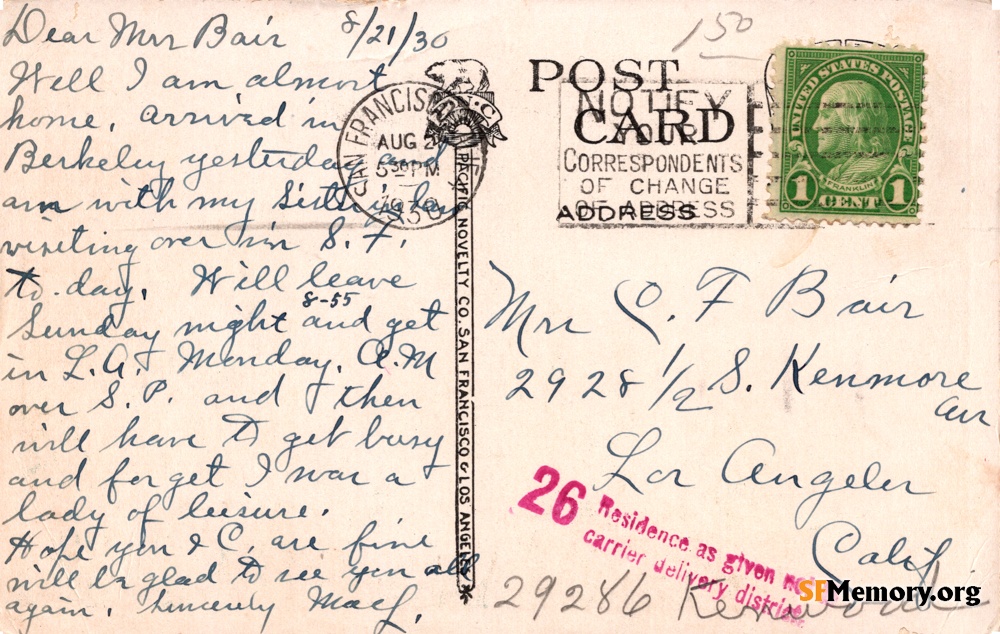 8/21/30
Dear Mrs Bair
Well I am almost
home, arrived in
Berkeley yesterday and
am with my Sister
visiting over in S. F.
to-day. Will leave
8-55
Sunday night and get
in L.A. Monday, A.M
over S. P. and then
will have to get busy
and forget I was a
lady of leisure.
Hope you & C. are fine
will be glad to see you all
again. Sincerely
SAN FRANCISCO
AUG 2
5 30 PM
1930
PACIFIC NOVELTY CO. SAN FRANCISCO & LOS ANGELES
150
POST
CARD
ADDRESS
NOTIFY
YOUR
CORRESPONDENTS
OF CHANGE
OF ADDRESS
UNITED STATES POSTAGE
FRANKLIN
1 CENT 1
Mrs C. F Bair
2928 1/2 S. Kenmore
Ave
Los Angeles
Calif
26
Residence as given not
carrier delivery district
29286 Kenwood
SFMemory.org